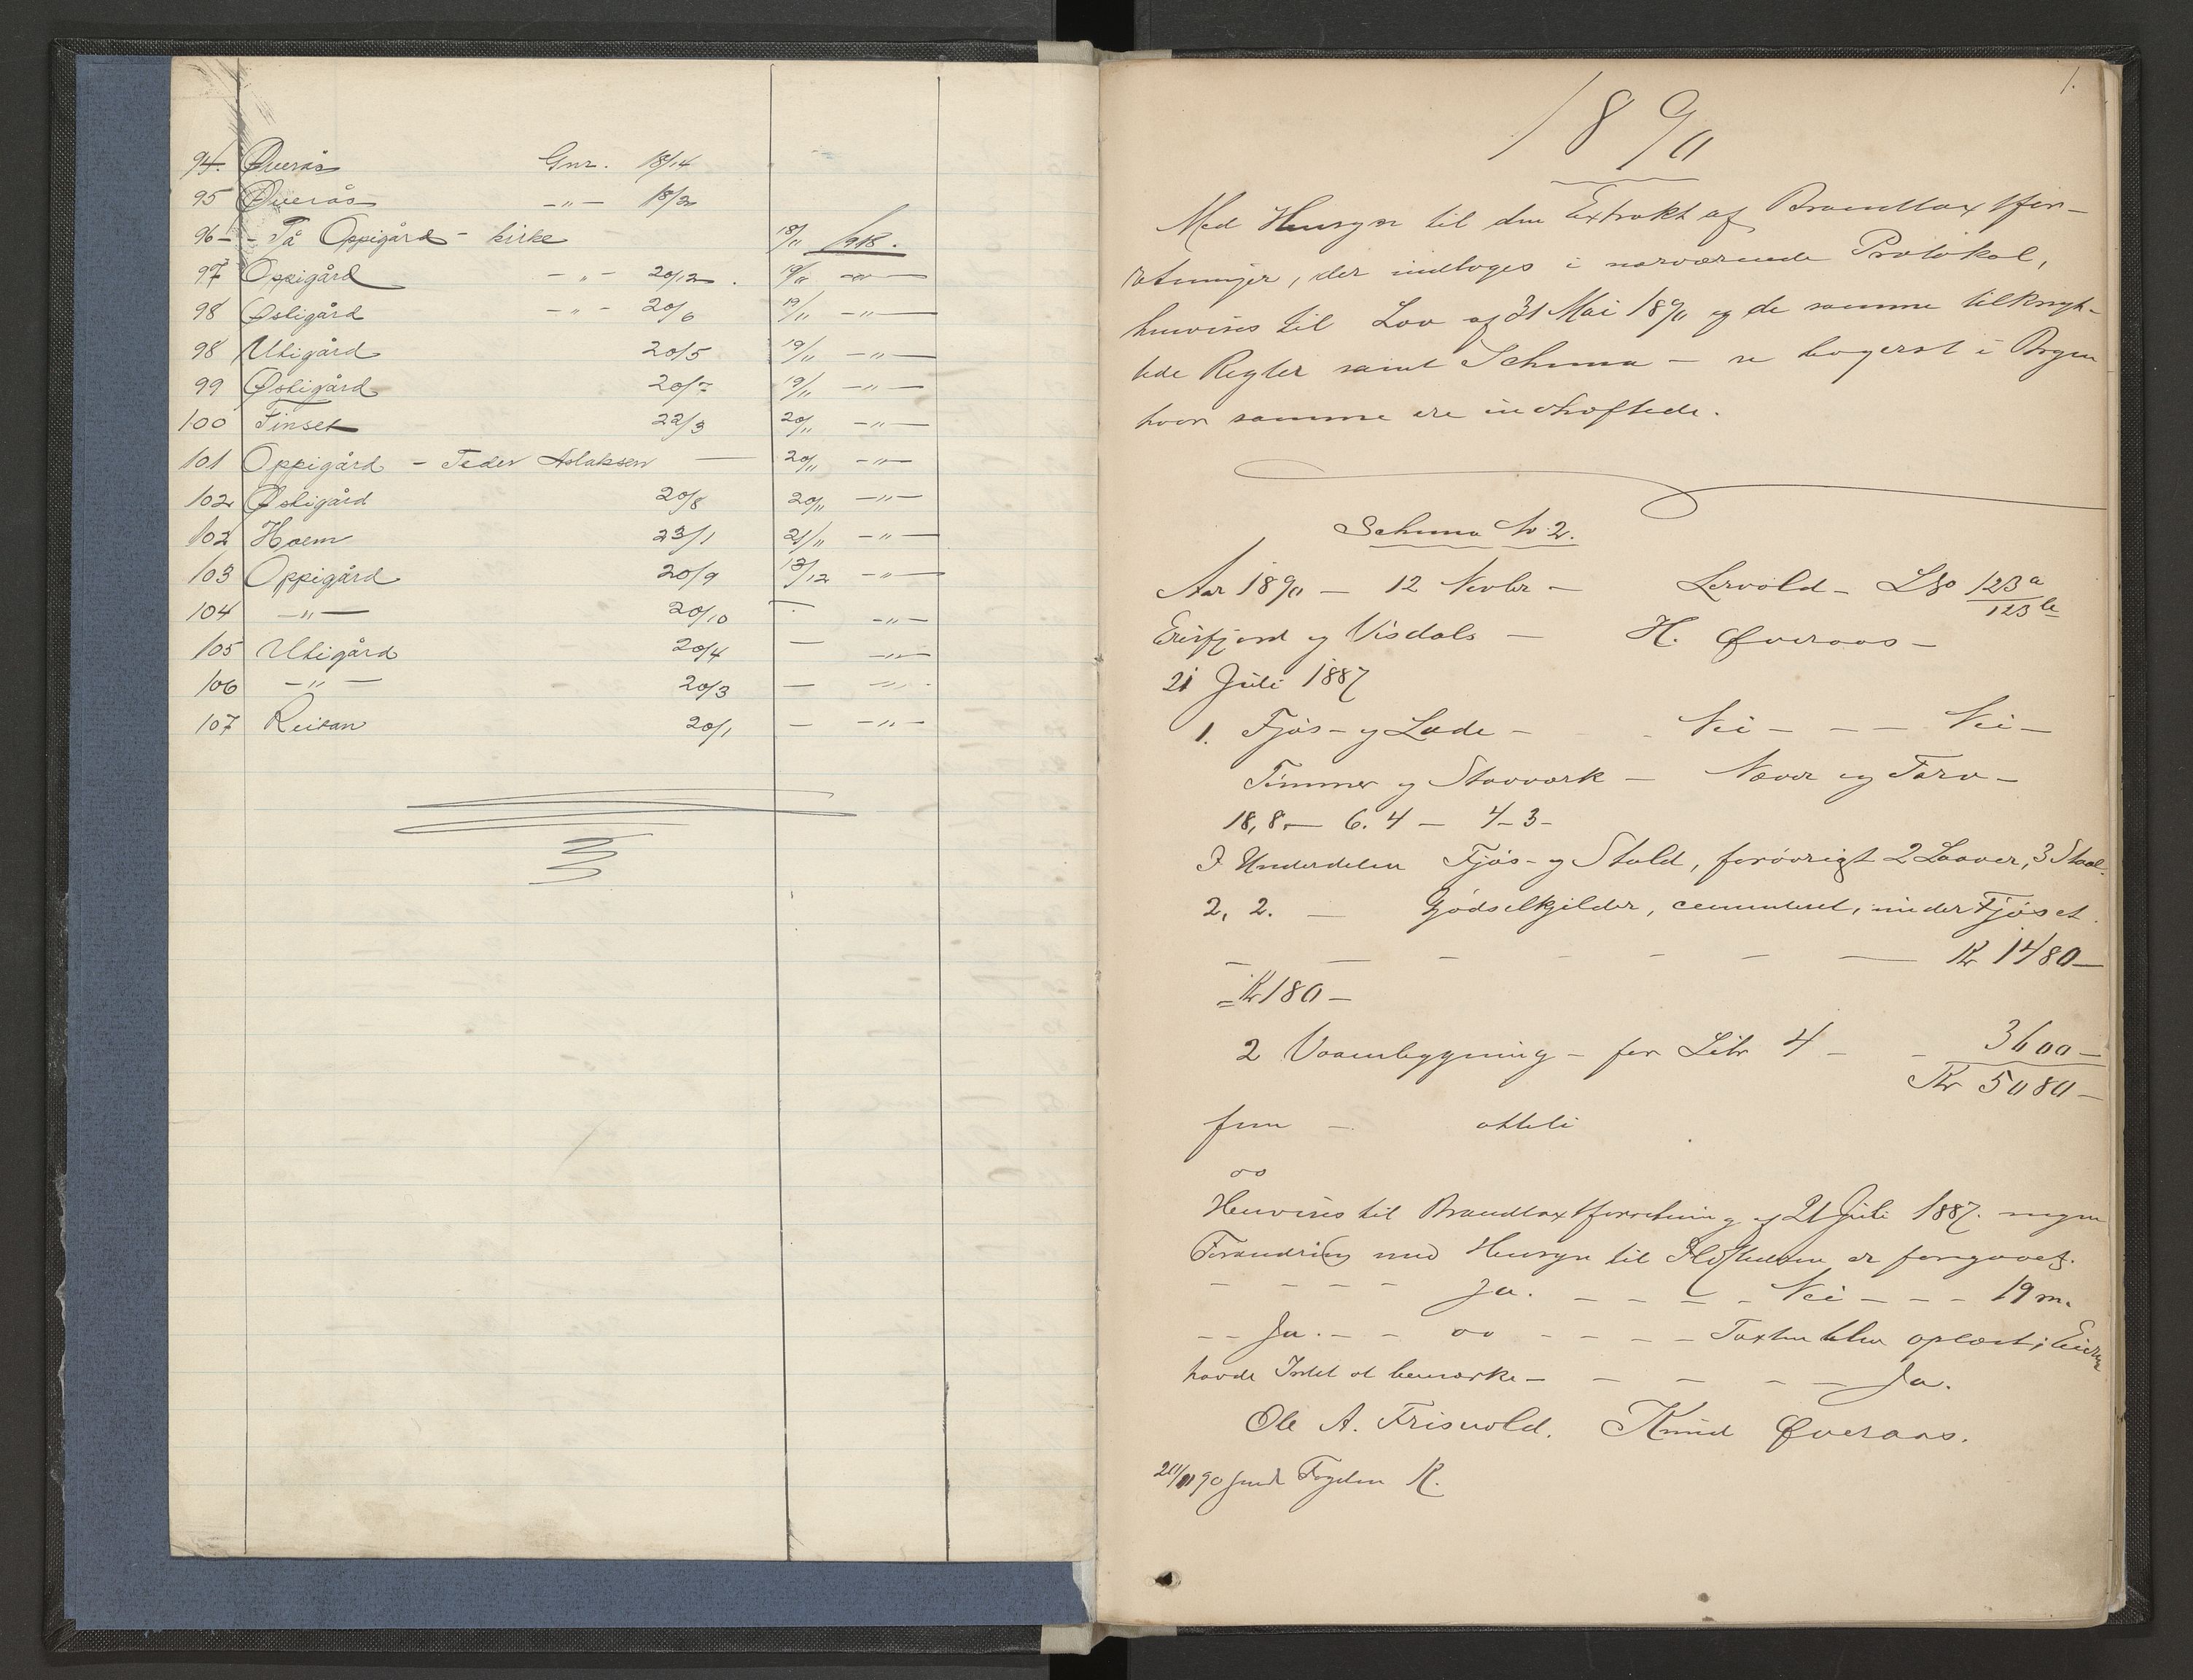 94. Øverås Gnr. 18/14
95 Øverås -"- 18/2
96 - På Oppigård - kirke 18/11 1918.
97 Oppigård -"- 20/12. 19/11 -"-
98 Østigård -"- 20/6 19/11 -"-
98 Utigård 20/5 19/11 -"-
99 Østigård 20/7 19/11 -"-
100 Finset 22/3 20/11 -"-
101 Oppigård - Peder Aslaksen — 20/11 -"-
102 Østigård 20/8 20/11 -"-
102 Hoem 23/1 21/11 -"-
103 Oppigård 20/9 13/12 -"-
104 -"- 20/10 — -"-
105 Utigård 20/4 — -"-
106 -"- 20/3 — -"-
107 Reitan 20/1 — -"-
1.
1890
Med Hensyn til den Extrakt af Brandtaxtfor-
retninger, der indtages i nærværende Protokol,
henvises til Lov af 31 Mai 1890 og de samme tilknyt-
tede Regler samt Schema – se bagerst i Bogen
hvor samme ere indhæftede.
Schema No 2.
Aar 1890 — 12 Novbr — Lervold - LNo 123a/123b
Eresfjord og Visdals — H. Øveraas —
21 Juli 1887
1. Fjøs- og Lade - Nei - - - Nei -
Tømmer og Stavværk — Næver og Tørv -
18,8 — 6.4 — 4-3-
I Underdelen Fjøs- og Stald, forøvrigt 2 Laaver, 3 Staal.
2, 2. — Gjødselkjelder, cementeret, under Fjøset.
- - - - - - — Kr 1480 —
= Kr 180 —
2 Vaanbygning - før Litr 4 - - 3600 —
Kr 5080 —
fem — otteti
oo
Henvises til Brandtaxtforretning af 21 Juli 1887. ingen
Forandring med Hensyn til Ildstederne er foregaaet.
- - - - Ja. - - - - Nei - - - 19 m.
- - Ja. - - oo - - - - Taxten blev oplæst; Eieren
havde Intet at bemærke - - - - - Ja.
Ole A. Frisvold. Knud Øveraas.
20/11 90 sendt Fogden K.